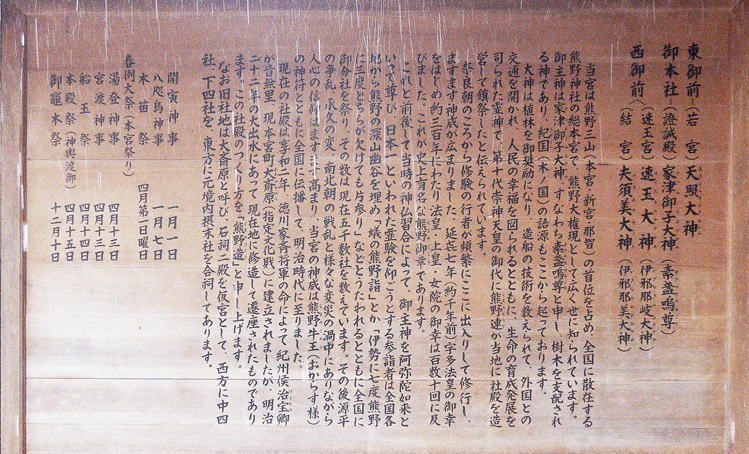 東御前−若宮 天照大神
御本社−證誠殿 家津御子大神(素盞嗚尊)
西御前〈(速玉宮) 速玉大神(伊邪那岐大神)
(結宮) 夫須美大神(伊邪那美大神)
当宮は熊野三山(本宮・新宮・那智)の首位を占め、全国に散在する
熊野神社の総本宮で、熊野大権現として広く世に知られています。
御主神は家津御子大神、すなわち素盞嗚尊と申し、樹木を支配され
る神であり、紀国(木ノ国)の語源もここから起っております。
大神は植林を御奨励になり、造船の技術を教えられて、外国との
交通を開かれ、人民の幸福を図られるとともに、生命の育成発展を
司られた霊神で、第十代崇神天皇の御代に熊野連が当地に社殿を造
営して鎮祭したと伝えられています。
奈良朝のころから修験の行者が頻繁にここに出入りして修行し、
ますます神威が広まりました。延㐂七年(約千年前)宇多法皇の御幸
をはじめ約三百年にわたり法皇・上皇・女院の御幸は百数十回に及
びました。これが史上有名な熊野御幸であります。
これと前後して当時の神仏習合によって、御主神を阿弥陀如来と
いって尊び、日本一といわれた霊験を仰ごうとする参詣者は全国各
地から熊野の深山幽谷を埋め「蟻の熊野詣」とか「伊勢に七度熊野
に三度どちらが欠けても片参り」などとうたわれるとともに全国に
御分社を祭り、その数は現在五千数社を数えています。その後源平
の争乱、承久の変、南北朝の戦乱と様々な変災の渦中にありながら
人心の信仰はますます高まり、当宮の神威は熊野牛王(おからす様)
の神符とともに全国に伝播して、明治時代に至りました。
現在の社殿は享和二年、徳川家斉将軍の命によって紀州侯治宝卿
が音無里、現本宮町大斎原(指定文化戝)に建立されましたが、明治
二十二年の大出水にあって、現在地に修造して遷座されたものであり
ます。この社殿のつくり方を「熊野造」と申し上げます。
なお旧社地は大斎原と呼び、石祠二殿を仮宮として、西方に中四
社、下四社を、東方に元境内摂末社を合祀してあります。
開寅神事 一月一日
八咫烏神事 一月七日
木苗祭 四月第二日曜日
春例大祭(本宮祭り)
湯登神事 四月十三日
宮渡神事 四月十三日
船玉祭 四月十四日
本殿祭(神輿渡御) 四月十五日
御竈木祭 十二月十日